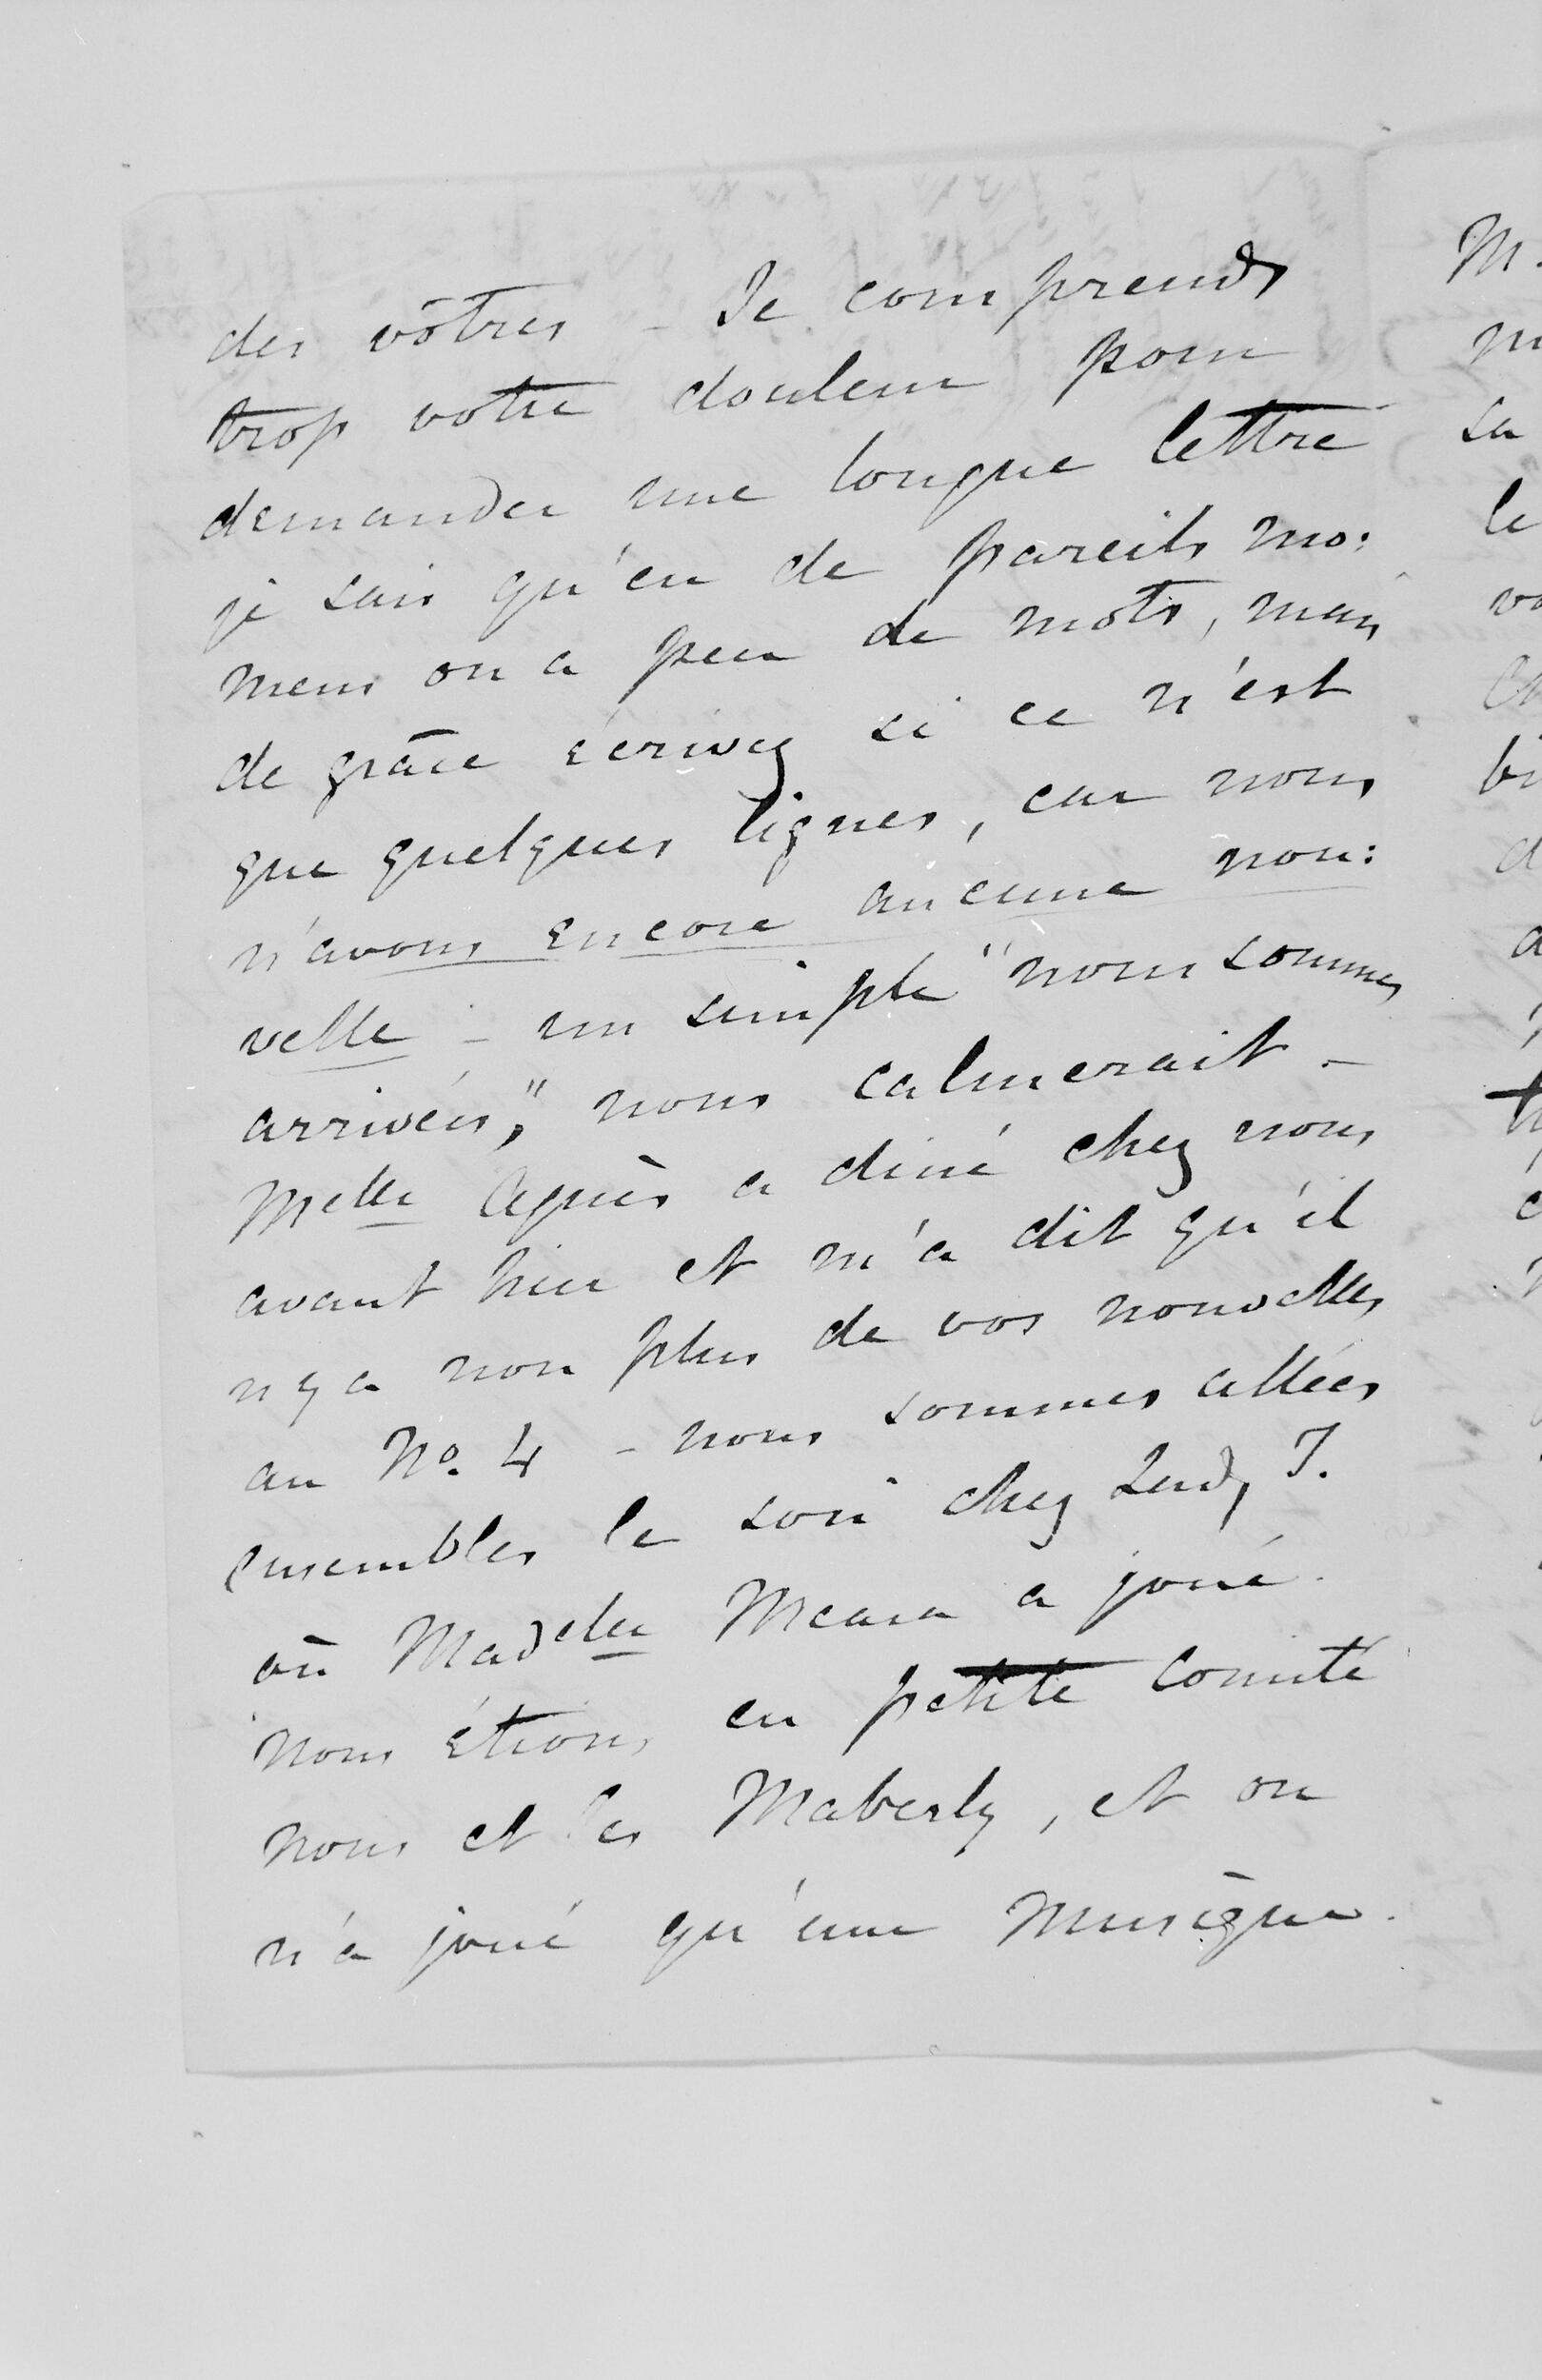 des vôtres – Je comprends
trop votre douleur pour
demander une longue lettre
je sais qu'en de pareils mo:
mens on a peu de mots, mais
de grâce écrivez si ce n'est
que quelques lignes, car nous
n'avons encore aucune nou:
velle – un simple "nous sommes
arrivées," nous calmerait –
Melle Agnès a diné chez nous
avant hier et m'a dit qu'il
n'y a non plus de vos nouvelles
au No. 4 – nous sommes allées
ensembles le soir chez Lady T.
où Madelle Meara a joué.
nous étions en petite comité
nous et les Maberly, et on
n'a joué qu'une musique
M.
sa
le